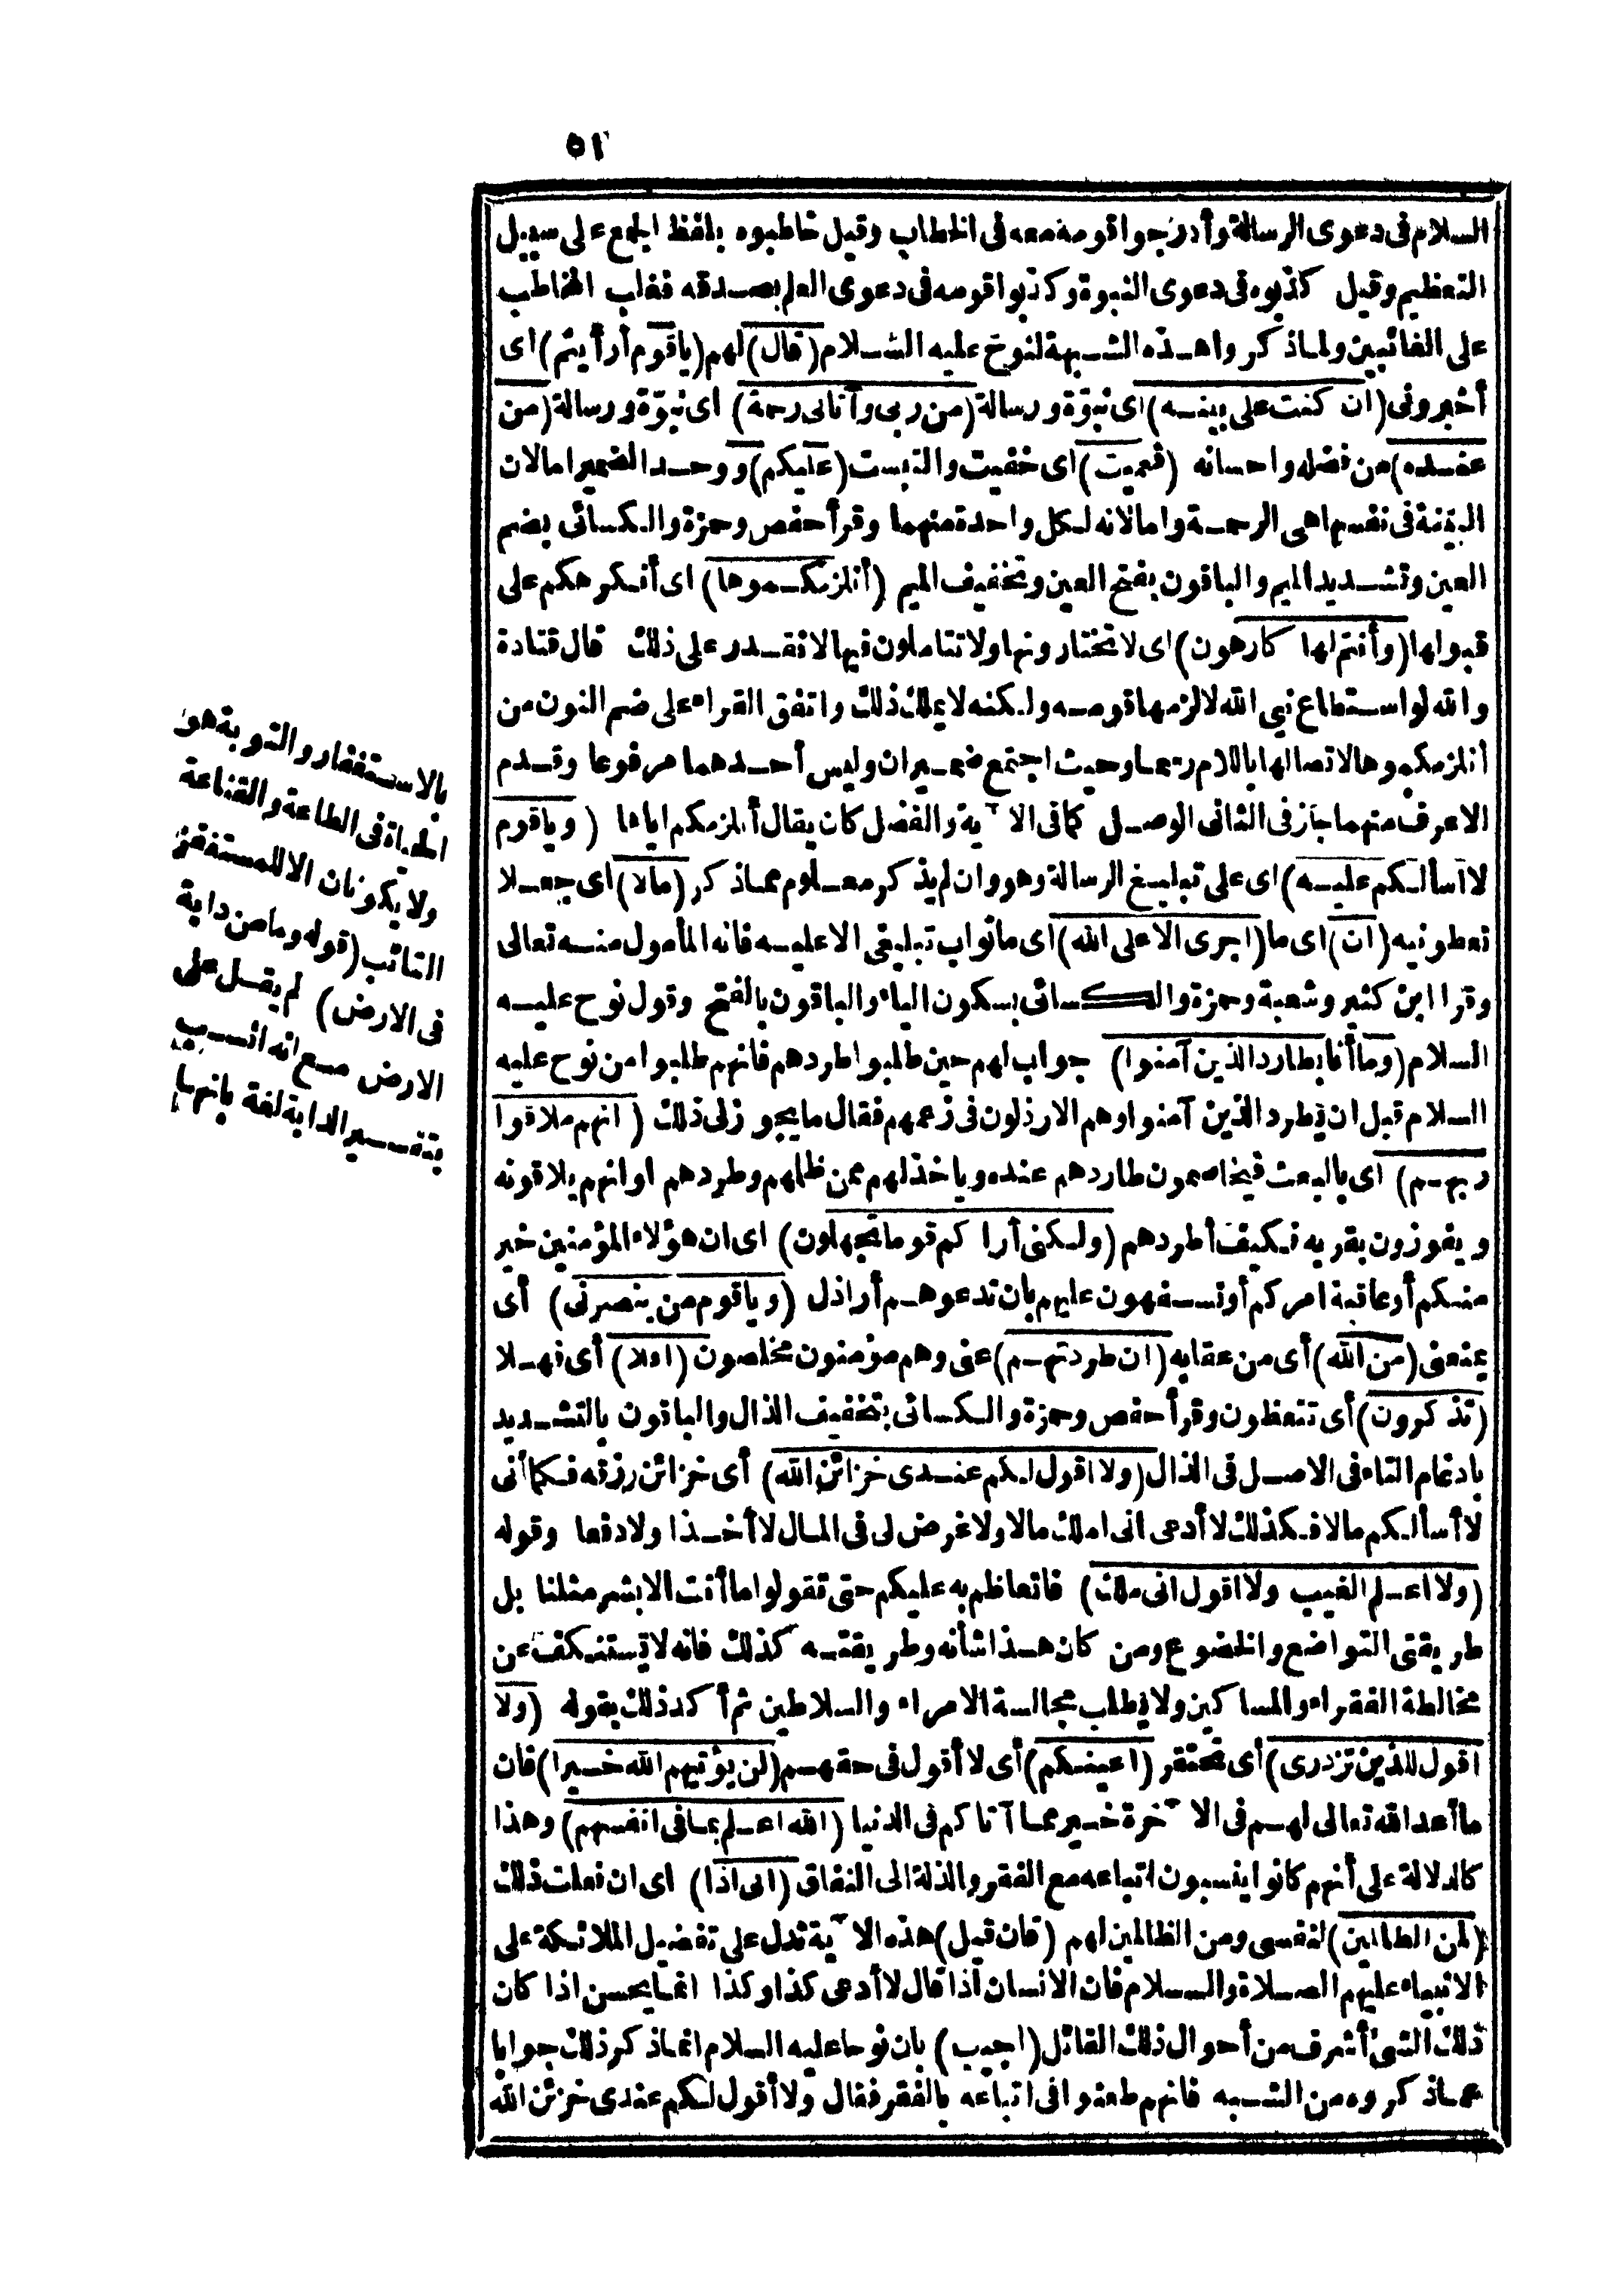 ٥١
السلام فى دعوى الرسالة وأدرجوا قومه معه فى الخطاب وقيل خاطبوه بلفظ الجمع على سبيل
التعظيم وقيل كذبوه فى دعوى النبوة وكذبوا قومه فى دعوى العلم بصدقه فغلب المخاطب
على الغائبين ولما ذكروا هذه الشبهة لنوح عليه السلام (قال) لهم (ياقوم أرأيتم) اى
أخبرونى (ان كنت على بينه) اى نبوّة ورسالة (من ربى وآتانى رحمة) اى نبوّة ورسالة (من
عنده) من فضله واحسانه (فعميت) اى خفيت والتبست (عليكم) ووحد الضمير اما لان
البينة فى نفسها هى الرحمة واما لانه لكل واحدة منهما وقرأ حفص وحمزة والكسائى بضم
العين وتشديد الميم والباقون بفتح العين وتخفيف الميم (أنلزمكموها) اى أنكرهكم على
قبولها (وأنتم لها كارهون) اى لا تختارونها ولا تتاملون فيها لا نقدر على ذلك قال قتادة
والله لو استطاع نبى الله لالزمها قومه ولكنه لا يملك ذلك واتفق القراء على ضم النون من
أنلزمكموها لاتصالها باللام رسما وحيث اجتمع ضميران وليس أحدهما مرفوعا وقدم
الاعرف منهما جاز فى الثانى الوصل كما فى الآية والفضل كان يقال أنلزمكم اياها (وياقوم
لا أسألكم عليه) اى على تبليغ الرسالة وهو وان لم يذكر معلوم مما ذكر (مالا) اى جعلا
تعطونيه (ان) اى ما (اجرى الا على الله) اى ما ثواب تبليغى الا عليه فانه المأمول منه تعالى
وقرا ابن كثير وشعبة وحمزة والكسائى بسكون الياء والباقون بالفتح وقول نوح عليه
السلام (وما أنا بطارد الذين آمنوا) جواب لهم حين طلبوا طردهم فانهم طلبوا من نوح عليه
السلام قبل ان يطرد الذين آمنوا وهم الارذلون فى زعمهم فقال ما يجوز لى ذلك (انهم ملاقوا
ربهم) اى بالبعث فيخاصمون طاردهم عنده وياخذ لهم ممن ظلمهم وطردهم او انهم يلاقونه
ويفوزون بقربه فكيف أطردهم (ولكنى أراكم قوما تجهلون) اى ان هؤلاء المؤمنين خير
منكم أو عاقبة امركم أو تسفهون عليهم بان تدعوهم أراذل (وياقوم من ينصرنى) أى
يمنعنى (من الله) أى من عقابه (ان طردتهم) عنى وهم مؤمنون مخلصون (افلا) أى فهلا
(تذكرون) أى تتعظون وقرأ حفص وحمزة والكسائى بتخفيف الذال والباقون بالتشديد
بادغام التاء فى الاصل فى الذال (ولا اقول لكم عندى خزائن الله) أى خزائن رزقه فكما أنى
لا أسألكم مالا فكذلك لا أدعى انى املك مالا ولا غرض لى فى المال لا أخذا ولا دفعا وقوله
(ولا اعلم الغيب ولا اقول انى ملك) فاتعاظم به عليكم حتى تقولوا ما أنت الا بشر مثلنا بل
طريقتى التواضع والخضوع ومن كان هذا شأنه وطريقته كذلك فانه لا يستنكف عن
مخالطة الفقراء والمساكين ولا يطلب مجالسة الامراء والسلاطين ثم أكد ذلك بقوله (ولا
اقول للذين تزدرى) أى تحتقر (اعينكم) أى لا أقول فى حقهم (لن يؤتيهم الله خيرا) فان
ما أعد الله تعالى لهم فى الآخرة خير مما آتاكم فى الدنيا (الله اعلم بما فى انفسهم) وهذا
كالدلالة على أنهم كانوا ينسبون اتباعه مع الفقر والذلة الى النفاق (انى اذا) اى ان فعلت ذلك
(لمن الظالمين) لنفسى ومن الظالمين لهم (فان قيل) هذه الآية تدل على تفضيل الملائكة على
الانبياء عليهم الصلاة والسلام فان الانسان اذا قال لا أدعى كذا وكذا انما يحسن اذا كان
ذلك الشئ أشرف من أحوال ذلك القائل (اجيب) بان نوحا عليه السلام انما ذكر ذلك جوابا
عما ذكروه من الشبه فانهم طعنوا فى اتباعه بالفقر فقال ولا أقول لكم عندى خزئن الله
بالاستغفار والتوبة هو
الحياة فى الطاعة والقناعة
ولا يكونان الا للمستغفر
التائب (قوله وما من دابة
فى الارض) لم يقل على
الارض مع انه انسب
بتفسير الدابة لغة بانها ما